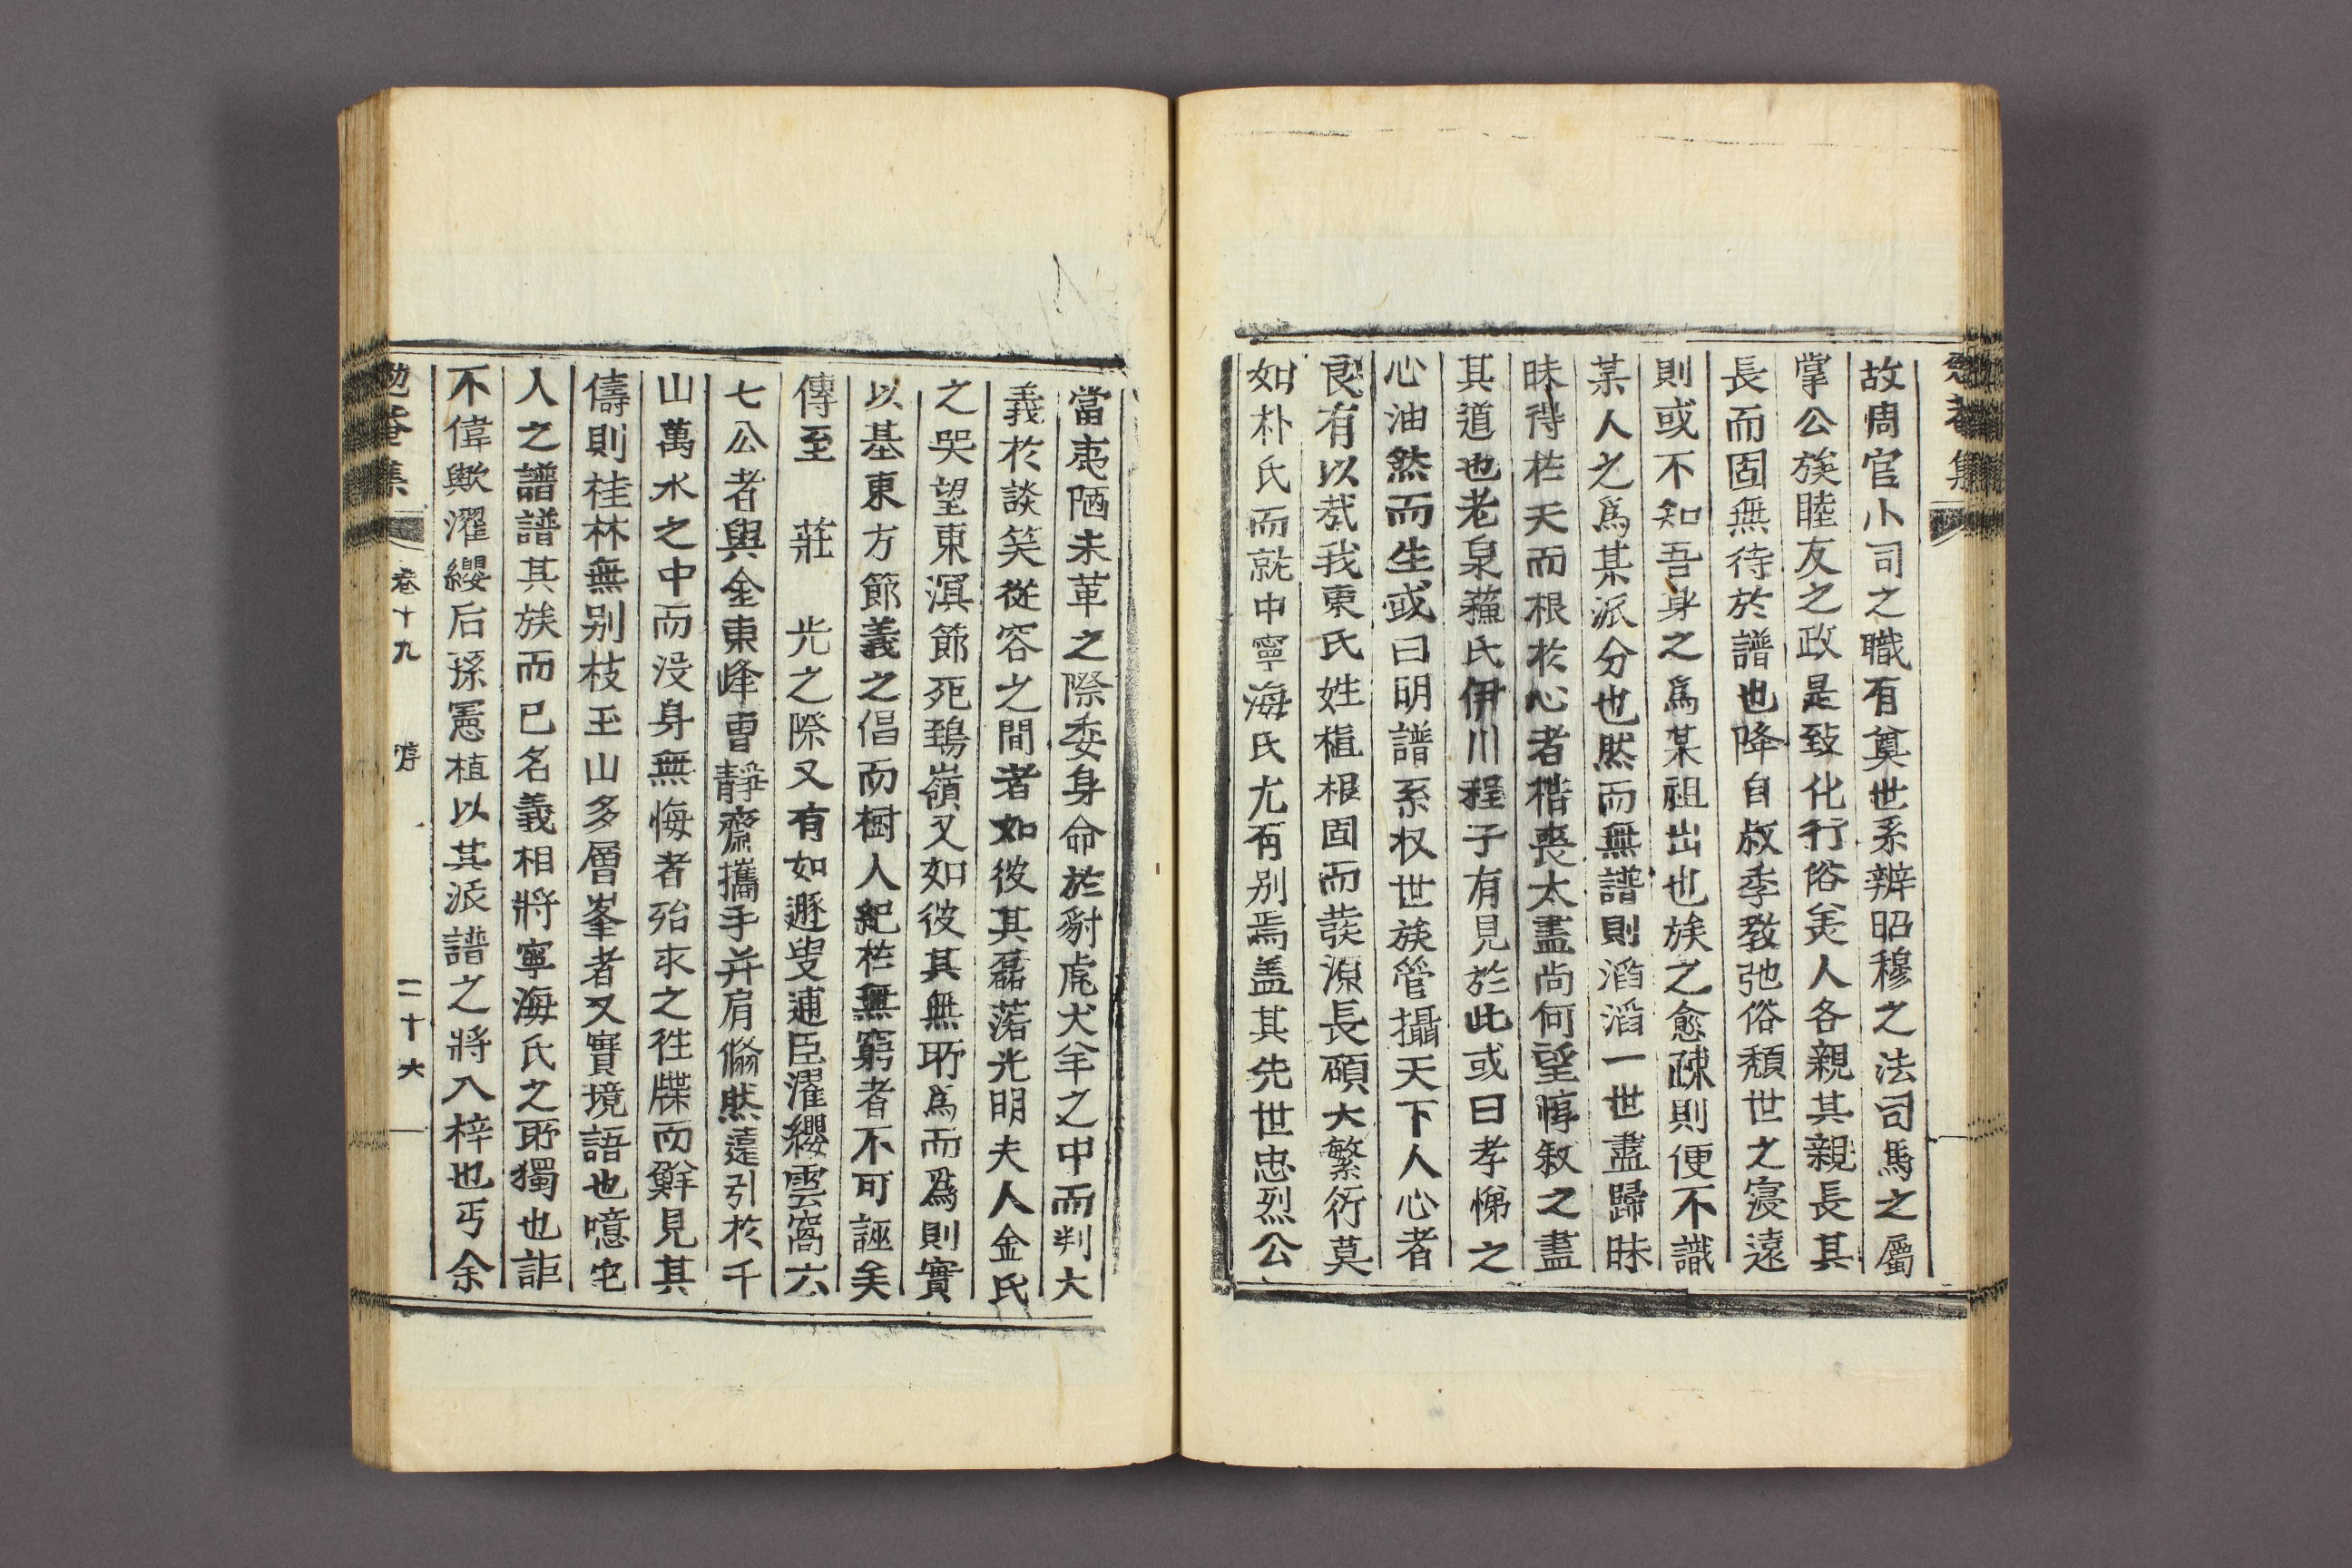 故周官小司之職有奠世系辨昭穆之法司馬之屬
掌公族睦友之政是致化行俗羙人各親其親長其
長而固無待於譜也降自叔季敎弛俗頹世之寖遠
則或不知吾身之爲某祖出也族之愈疎則便不識
某人之爲某派分也然而無譜則滔滔一世盡歸昧
昧得在天而根於心者梏喪太盡尙何望惇叙之盡
其道也老泉蘓氏伊川程子有見於此或曰孝悌之
心油然而生或曰明譜系収世族管攝天下人心者
良有以㢤我東氏姓植根固而發源長碩大繁衍莫
如朴氏而就中寧海氏尤有别焉盖其先世忠烈公
當夷陋未革之際委身命於豺虎犬羊之中而判大
義於談笑從容之間者如彼其磊落光明夫人金氏
之哭望東溟節死鵄嶺又如彼其無所爲而爲則實
以基東方節義之倡而樹人紀在無窮者不可誣矣
傳至　莊　光之際又有如遯叟逋臣濯纓雲窩六
七公者與金東峰曺靜齋攜手并肩翛然遠引於千
山萬水之中而没身無悔者殆求之徃牒而鮮見其
儔則桂林無别枝玉山多層峯者又實境語也噫宅
人之譜譜其族而已名義相將寧海氏之所獨也詎
不偉歟濯纓后孫憲植以其派譜之將入梓也丐余
勉菴集　卷十九　序　二十六